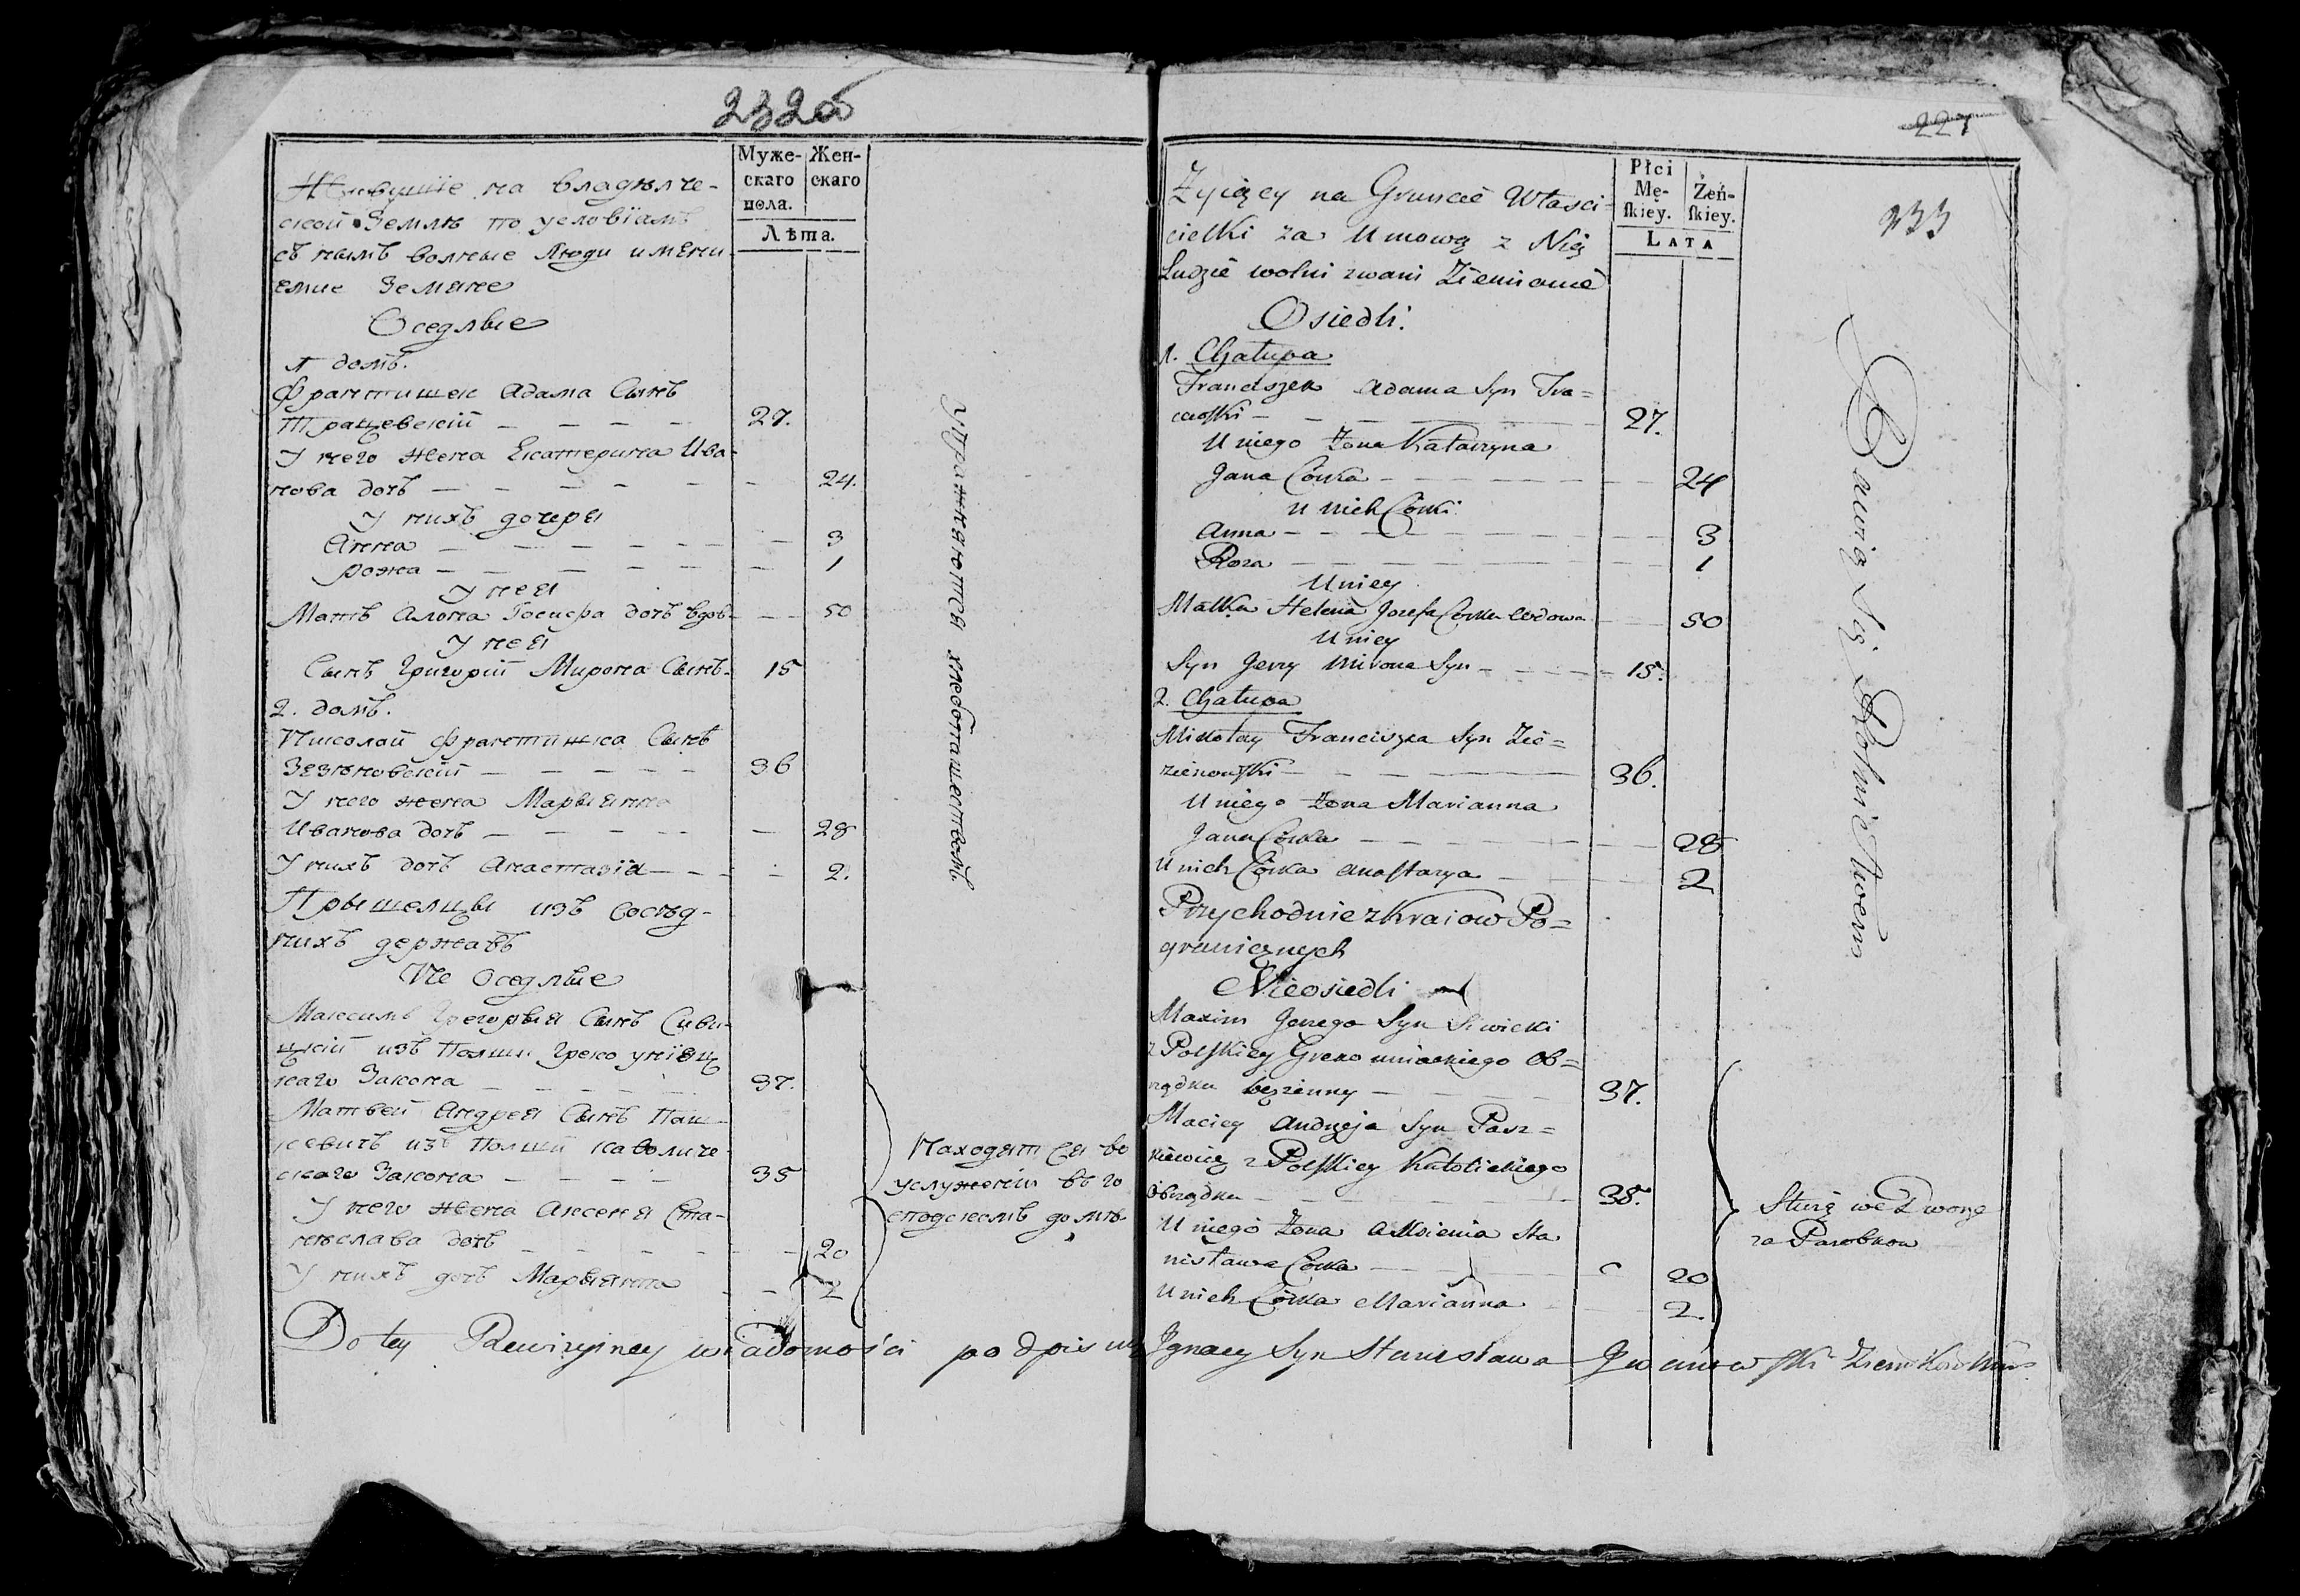 232об
Муже-
скаго
пола.
Жен-
скаго
Лѣта.
Живущіе на владѣлче-
ской Землѣ по условіямъ
съ нымъ волные Люди имени
емые Земяне
Оседлые
1 домъ.
Франтишек Адама Сынъ
Трацевскій 27.
У него жена Екатерина Ива-
нова дочь 24.
У нихъ дочеря
Анна 3
рожа 1
У нея
Мать Алона Іосифа дочь вдов 50
У нея
Сынъ Григорій Мирона Сынъ 15
2. домъ.
Николай Франтишка Сынъ
Зезюновскій 36
У него жена Марыянна
Иванова дочь 28
У нихъ дочь Анастазія 2.
Прышелцы изъ Сосѣд-
нихъ державъ
Не Оседлые
Максимъ Грегорыя Сынъ Сиви-
цкій изъ Полши Греко уніяц
каго Закона 37.
Матвей Андрея Сынъ Паш-
кевичъ изъ Полши каѳоличе
скаго Закона 35
У него жена Аксеня Ста-
нислава дочь 20
У нихъ дочь Марыянна 2
упражняются хлебопашествомъ.
Находятся во
услуженіи в го
сподскомъ домѣ
221
233
Płci
Mę-
ſkiey.
Żeń-
ſkiey.
LATA
Żyiący na Gruncie Własci-
cielki za Umową z Nią
Ludzie wolni zwani Ziemianie
Osiedli.
1. Chałupa
Franciszek Adama Syn Tra=
cewſki 27.
U niego Żona Katarzyna
Jana Córka 24
u nich Córki
Anna 3
Roza 1
U niey
Matka Helena Jozefa Corka wdowa 50
U niey
Syn Jerzy Mirona Syn 15.
2. Chałupa
Mikołay Franciszka Syn Zie=
zienowſki 36.
U niego Żona Marianna
Jana Córka 28
U nich Córka Anaſtazya 2
Przychodnie z Kraiow Po=
granicznych
Nieosiedli
Maxim Jerzego Syn Siwicki
z Polſkiey Greko uniackiego Ob=
rządku bezżenny 37.
Maciey Andrzeja Syn Pasz=
kiewicz z Polſkiey Katolickiego
Obrządku 35.
U niego Żona Aksienia Sta
nisława Corka 20
U nich Córka Marianna 2.
Bawią Się Rolnictwem
Służą we Dworze
za Parobkow
Do tey Rewizyiney wiadomości podpisuię Ignacy Syn Stanisława